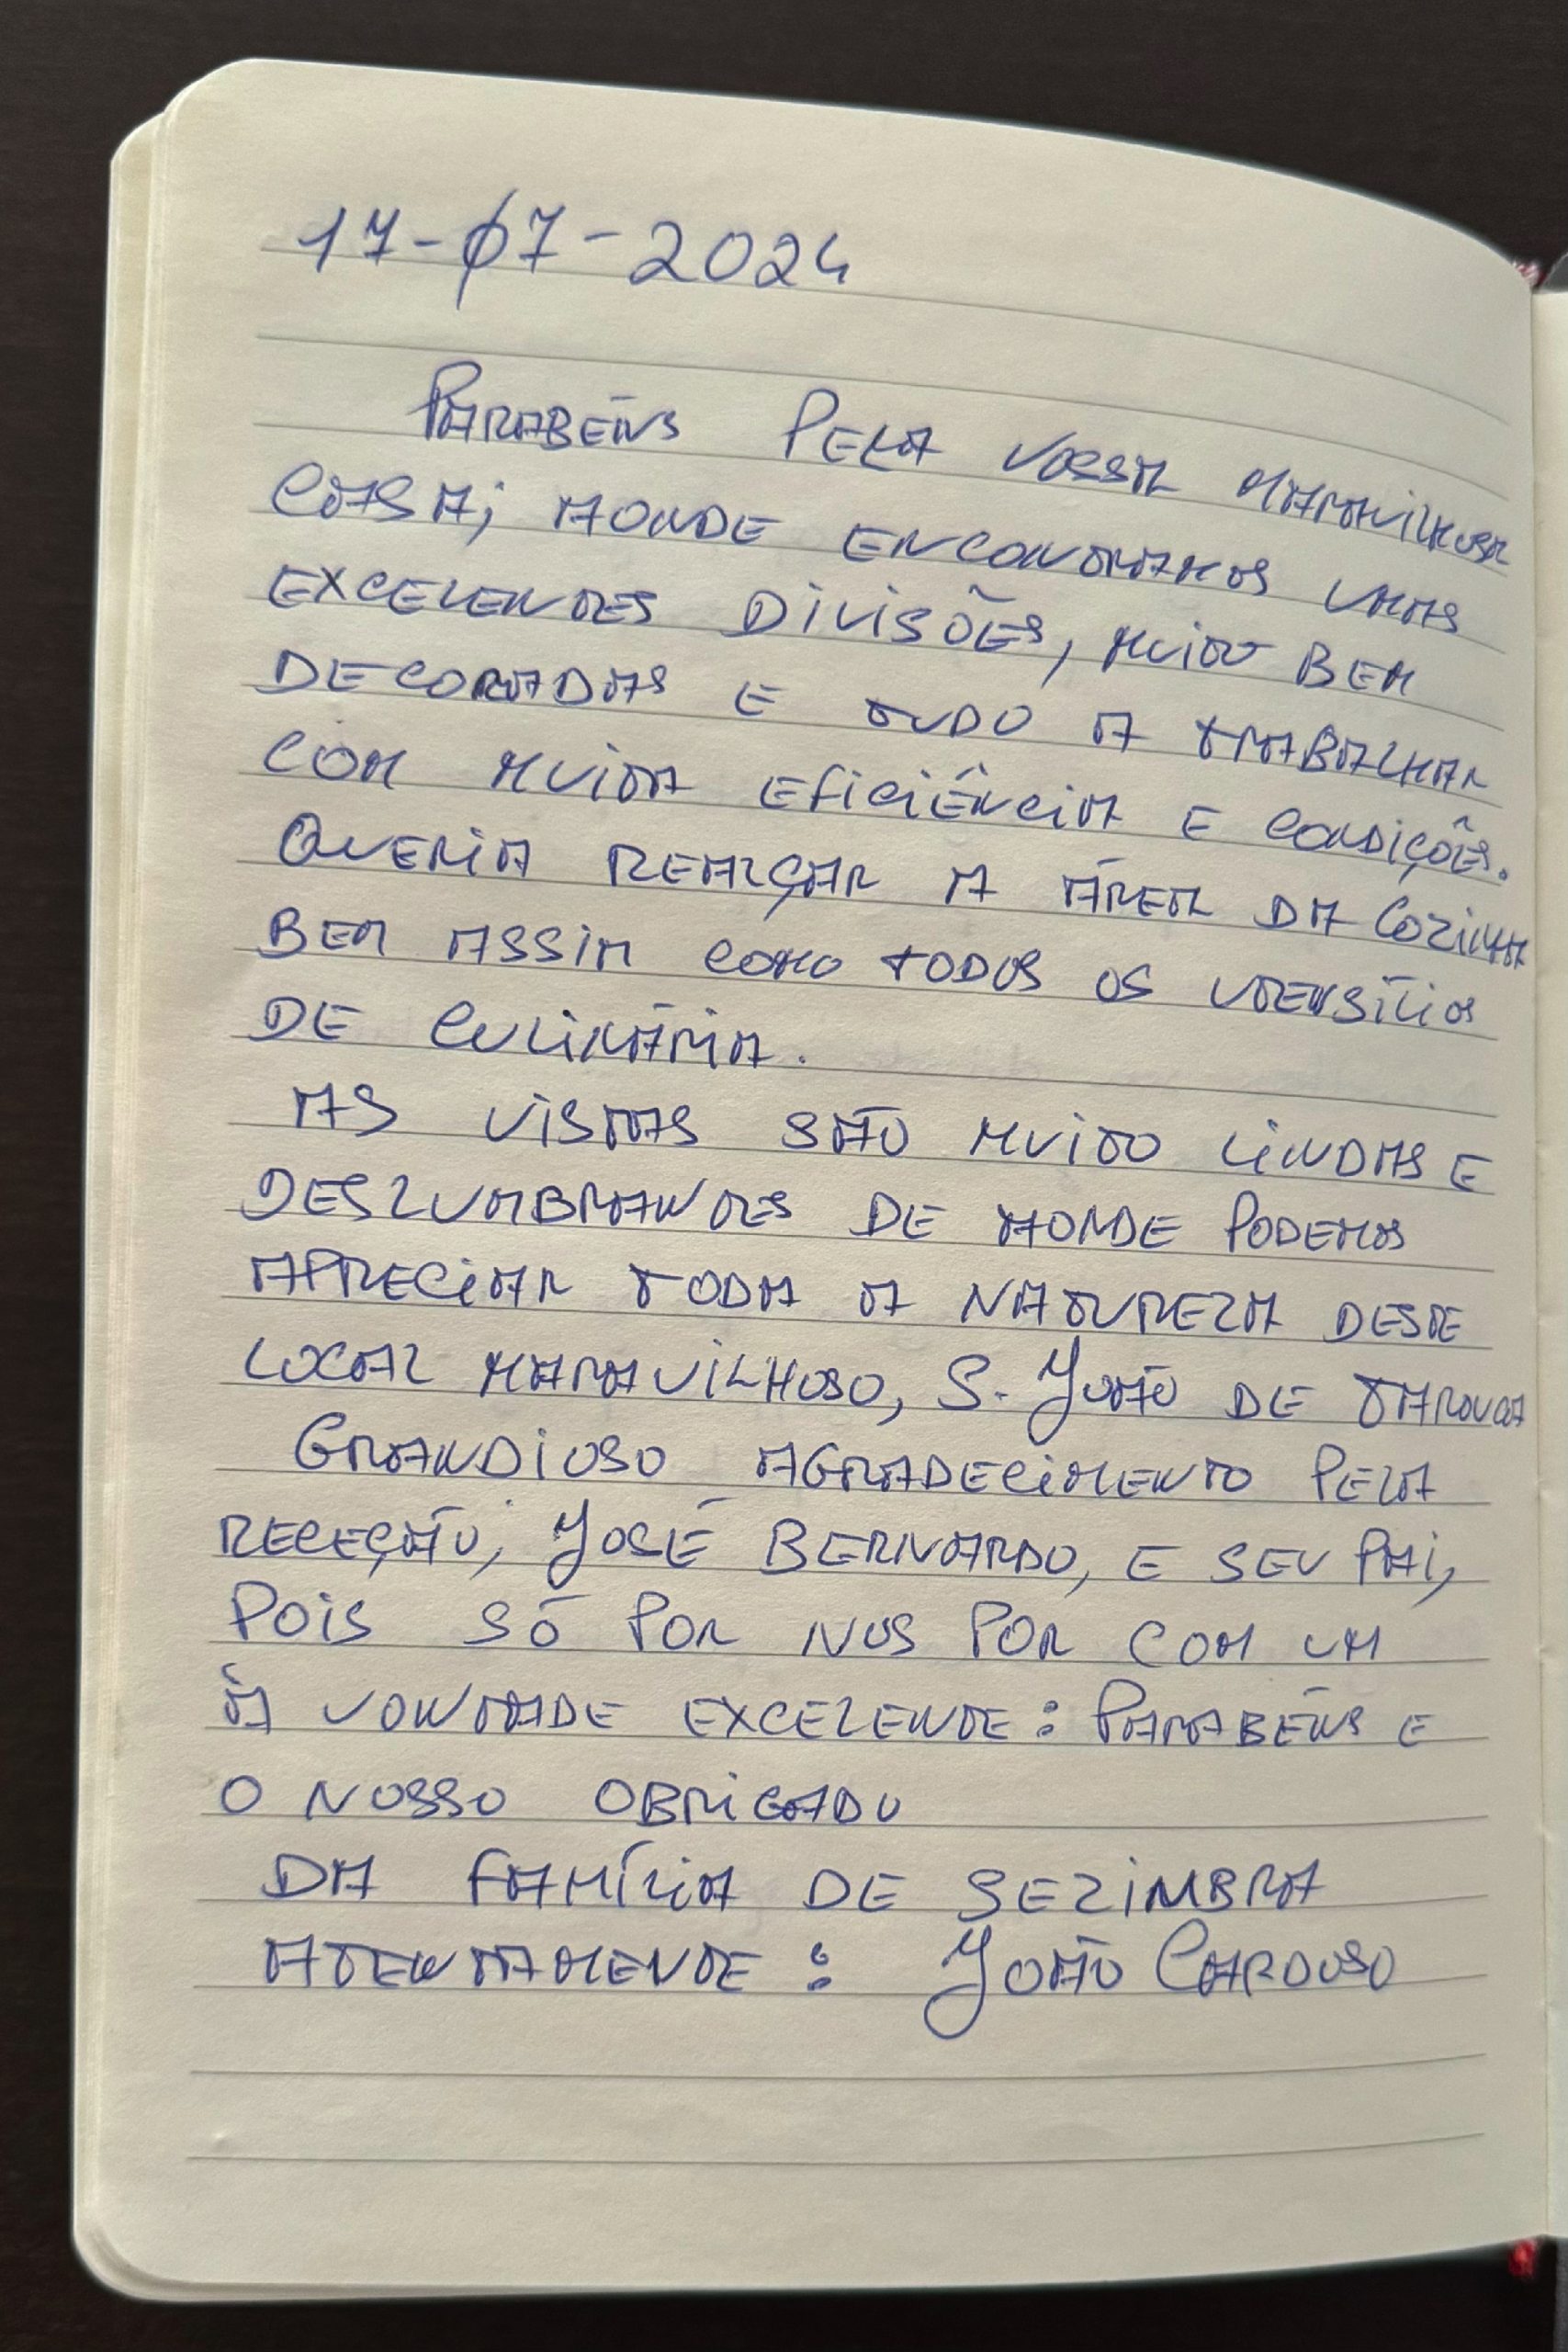 17-07-2024
PARABÉNS PELA VOSSA MARAVILHOSA
CASA; AONDE ENCONTRAMOS UMAS
EXCELENTES DIVISÕES, MUITO BEM
DECORADAS E TUDO A TRABALHAR
COM MUITA EFICIÊNCIA E CONDIÇÕES.
QUERIA REALÇAR A ÁREA DA COZINHA
BEM ASSIM COMO TODOS OS UTENSÍLIOS
DE CULINÁRIA.
AS VISTAS SÃO MUITO LINDAS E
DESLUMBRANTES DE AONDE PODEMOS
APRECIAR TODA A NATUREZA DESTE
LOCAL MARAVILHOSO, S. JOÃO DE TAROUCA
GRANDIOSO AGRADECIMENTO PELA
RECEÇÃO, JOSÉ BERNARDO, E SEU PAI,
POIS SÓ POR NOS POR COM UM
À VONTADE EXCELENTE: PARABÉNS E
O NOSSO OBRIGADO
DA FAMÍLIA DE SEZIMBRA
ATENTAMENTE: JOÃO CARDOSO